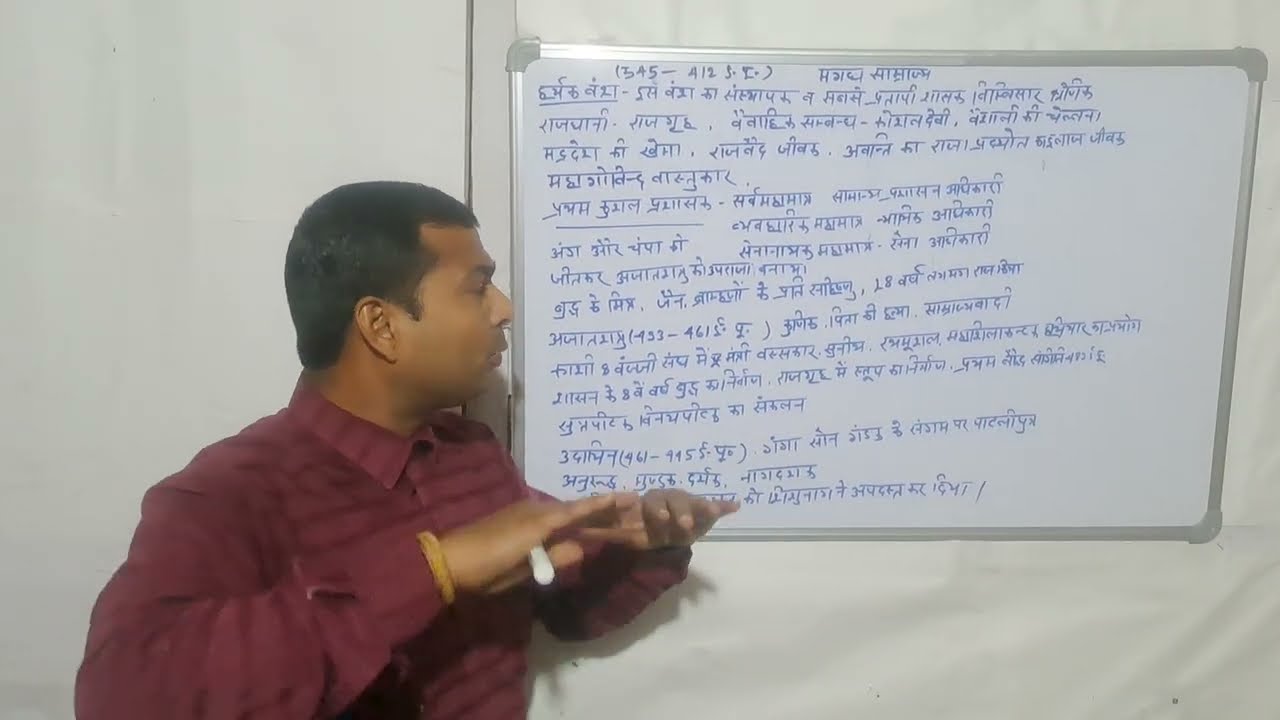 (545 - 412 ई.पू.) मगध साम्राज्य
हर्यक वंश - इस वंश का संस्थापक व सबसे प्रतापी शासक बिम्बिसार श्रेणिक
राजधानी - राजगृह, वैवाहिक सम्बन्ध - कोशलदेवी, वैशाली की चेल्लना
मद्रदेश की खेमा, राजवैद जीवक, अवन्ति का राजा प्रद्योत का इलाज जीवक
महागोविन्द वास्तुकार,
प्रथम कुशल प्रशासक - सर्वमहामात्र सामान्य प्रशासन अधिकारी
व्यवहारिक महामात्र न्यायिक अधिकारी
अंग और चंपा को सेनानायक महामात्र - सेना अधिकारी
जीतकर अजातशत्रु को उपराजा बनाया
बुद्ध के मित्र, जैन, ब्राम्हणों के प्रति सहिष्णु, 28 वर्ष लगभग राज किया
अजातशत्रु (493 - 461 ई. पू.) कुणिक, पिता की हत्या, साम्राज्यवादी
काशी व वज्जी संघ में मंत्री वस्सकार, सुनीध, रथमूशल, महाशिलाकन्टक हथियार का प्रयोग
शासन के 8 वें वर्ष बुद्ध का निर्वाण, राजगृह में स्तूप का निर्माण, प्रथम बौद्ध
सुत्तपीटक विनयपीटक का संकलन
उदायिन (461 - 445 ई. पू.) गंगा सोन गंडक के संगम पर पाटलीपुत्र
अनुरूद्ध, मुण्डक, दर्शक, नागदशक
को शिशुनाग ने अपदस्त कर दिया /